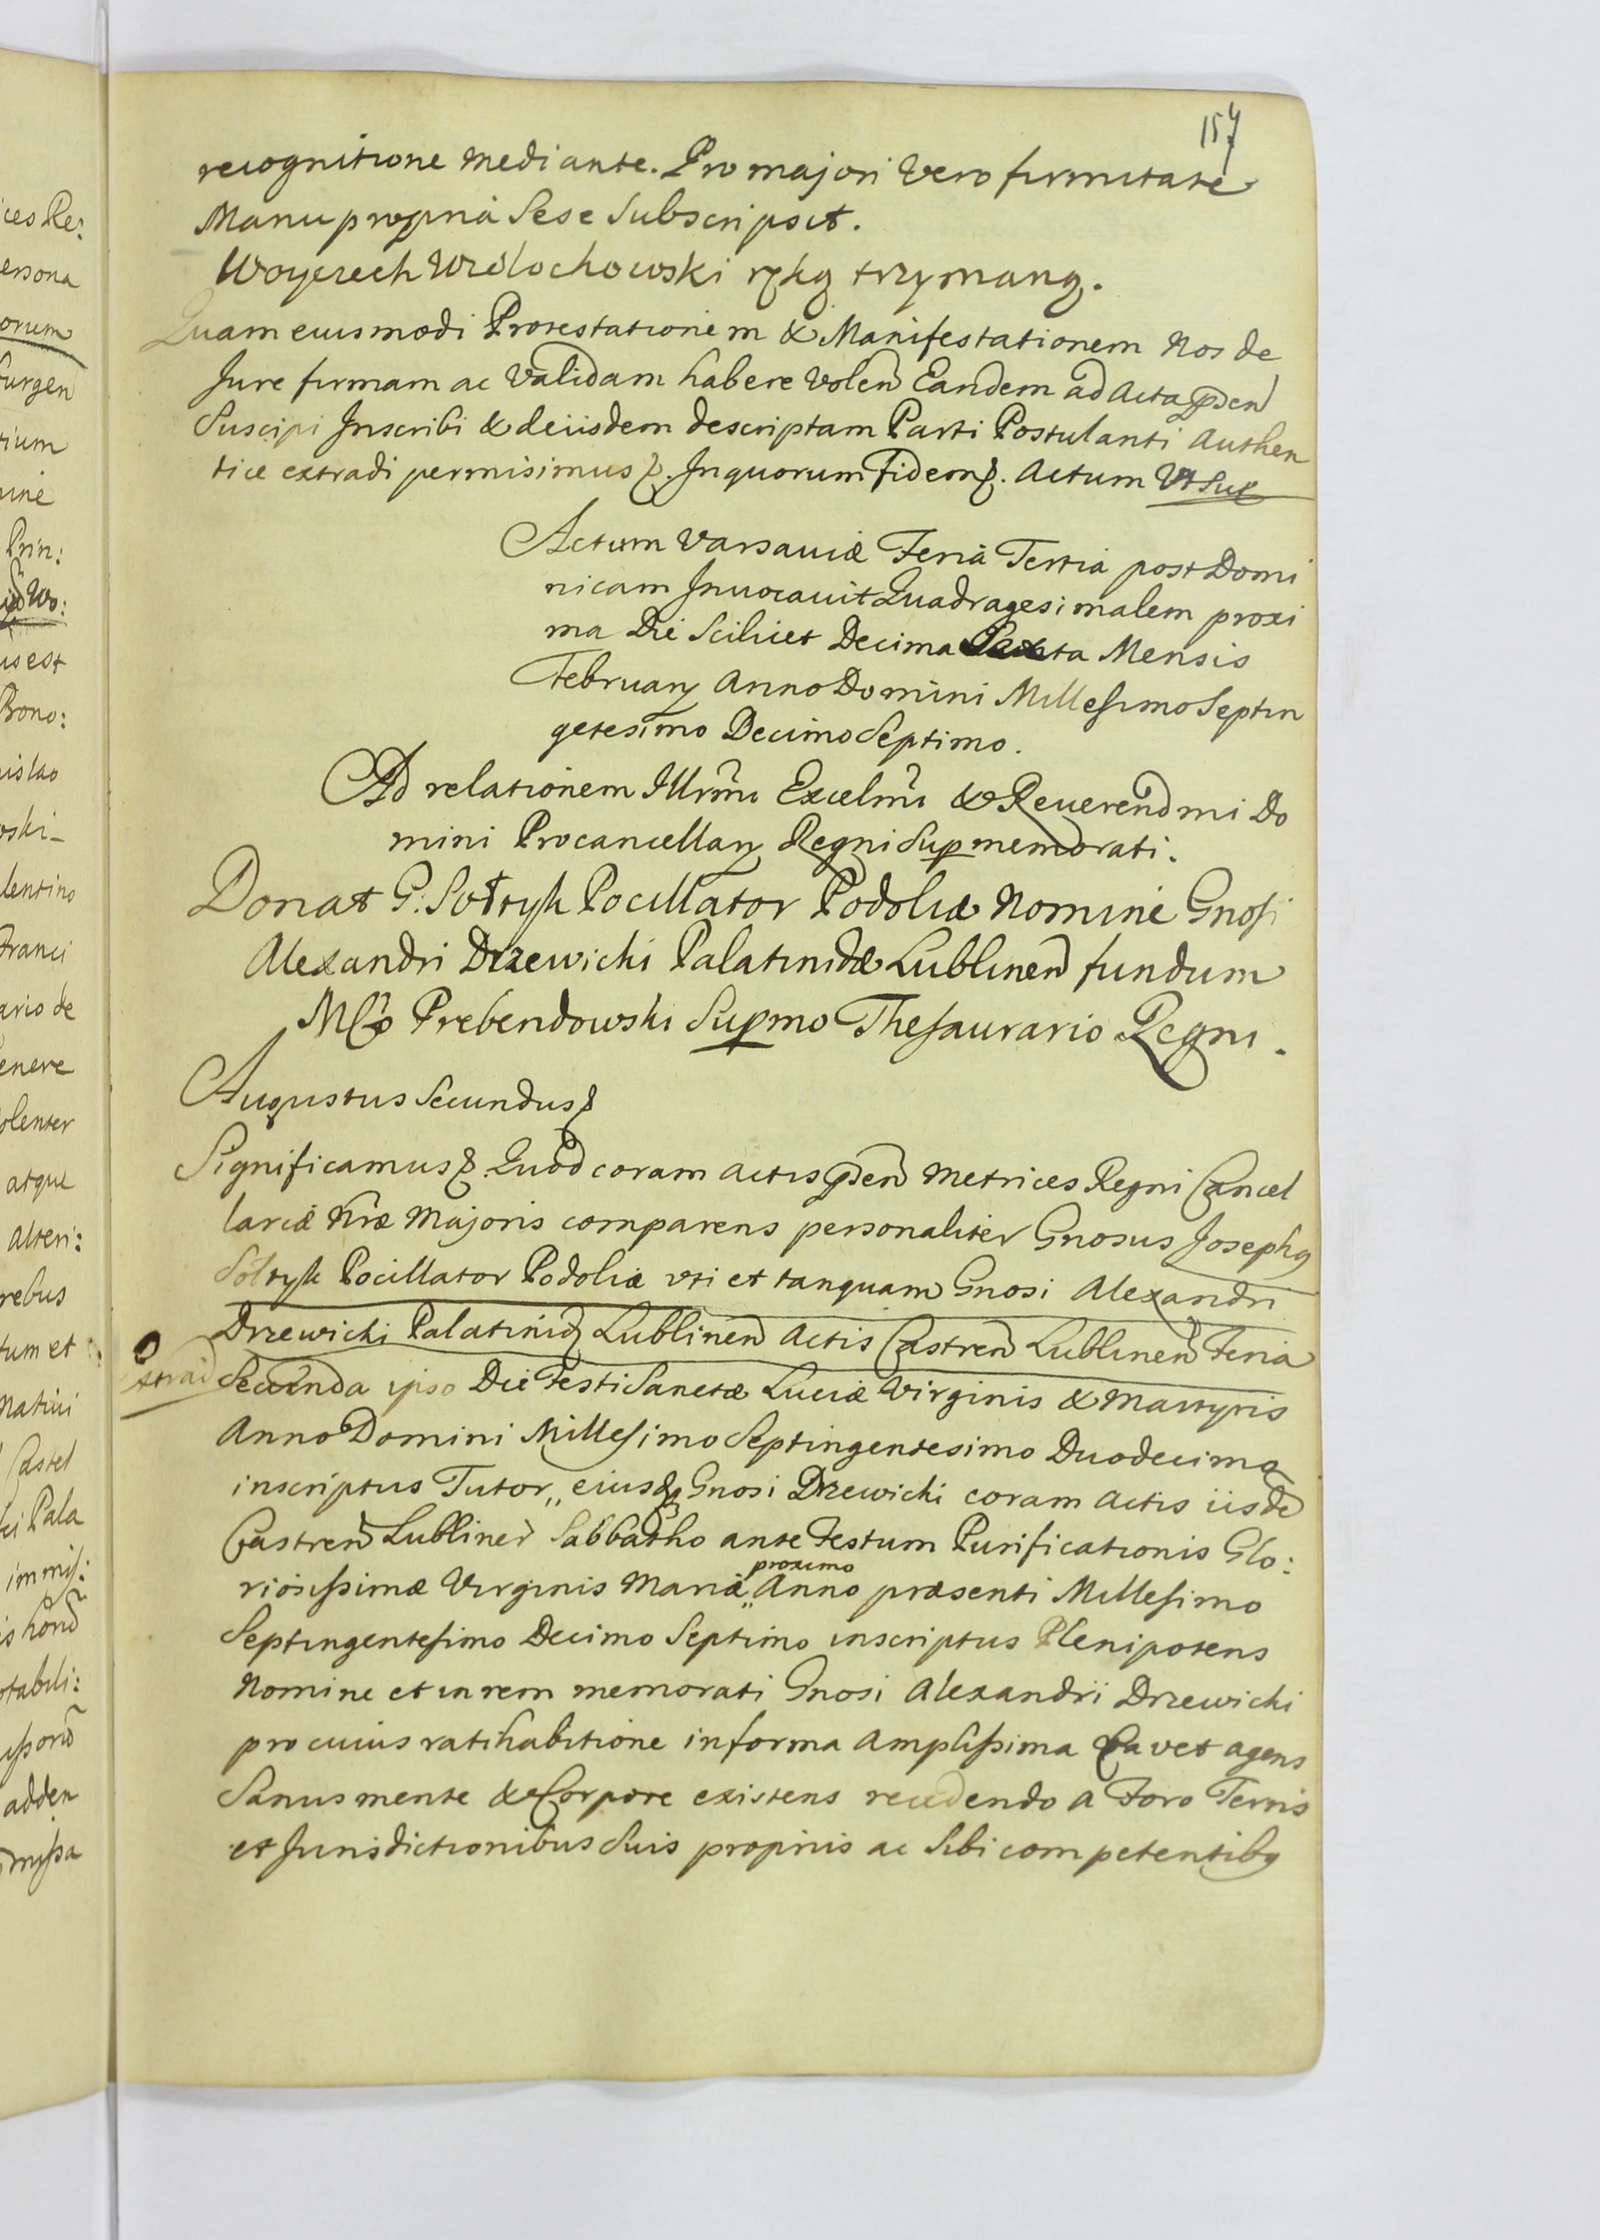 157
recognitione mediante. Pro majori Vero firmitate
Manu propriâ Sese Subscripsit.
Woyciech Wrélochowski ręką trzymaną.
Quam eiusmodi Protestationem & Manifestationem Nos de
Jure firmam ac Validam habere Volen Eandem ad Acta psen
Suscipi Inscribi & de iisdem descriptam Parti Postulanti Authen
tice extradi permisimus. In quorum Fidem. Actum Vt Sup
Actum Varsaviæ Feriâ Tertiâ post Domi
nicam Invocavit Quadragesimalem proxi
ma Die Scilicet Decima Sexta Mensis
February Anno Domini Millesimo Septin
getesimo Decimo Septimo.
Ad relationem Illrmi Excelmi & Reverendmi Do
mini Procancellary Regni Sup memorati.
Donat G: Sołtyk Pocillator Podoliæ Nomine Gnosi
Alexandri Drzewicki Palatinidæ Lublinen fundum
Mco Prebendowski Supmo Thesaurario Regni.
Augustus Secundus
Significamus. Quod coram actis psen Metrices Regni Cancel
lariæ Nræ Majoris comparens personaliter Gnosus Josephq
Sołtyk Pocillator Podoliæ vti et tanquam Gnosi Alexandri
Drzewicki Palatinid Lublinen Actis Castren Lublinen Feria
Extrad Secunda ipso Die Festi Sanctæ Luciæ Virginis & Martyris
Anno Domini Millesimo Septingentesimo Duodecimo
inscriptus Tutor,, eiusq Gnosi Drzewicki coram Actis iisde
Castren Lublinen Sabbatho ante Festum Purificationis Glo:
proximo
riosissimæ Virginis Mariæ,, Anno præsenti Millesimo
Septingentesimo Decimo Septimo inscriptus Plenipotens
Nomine et in rem memorati Gnosi Alexandri Drzewicki
pro cuius ratihabitione in forma Amplissima Cavet agens
Sanus mente & Corpore existens recedendo a Foro Terris
et Jurisdictionibus Suis proprijs ac Sibi competentibq